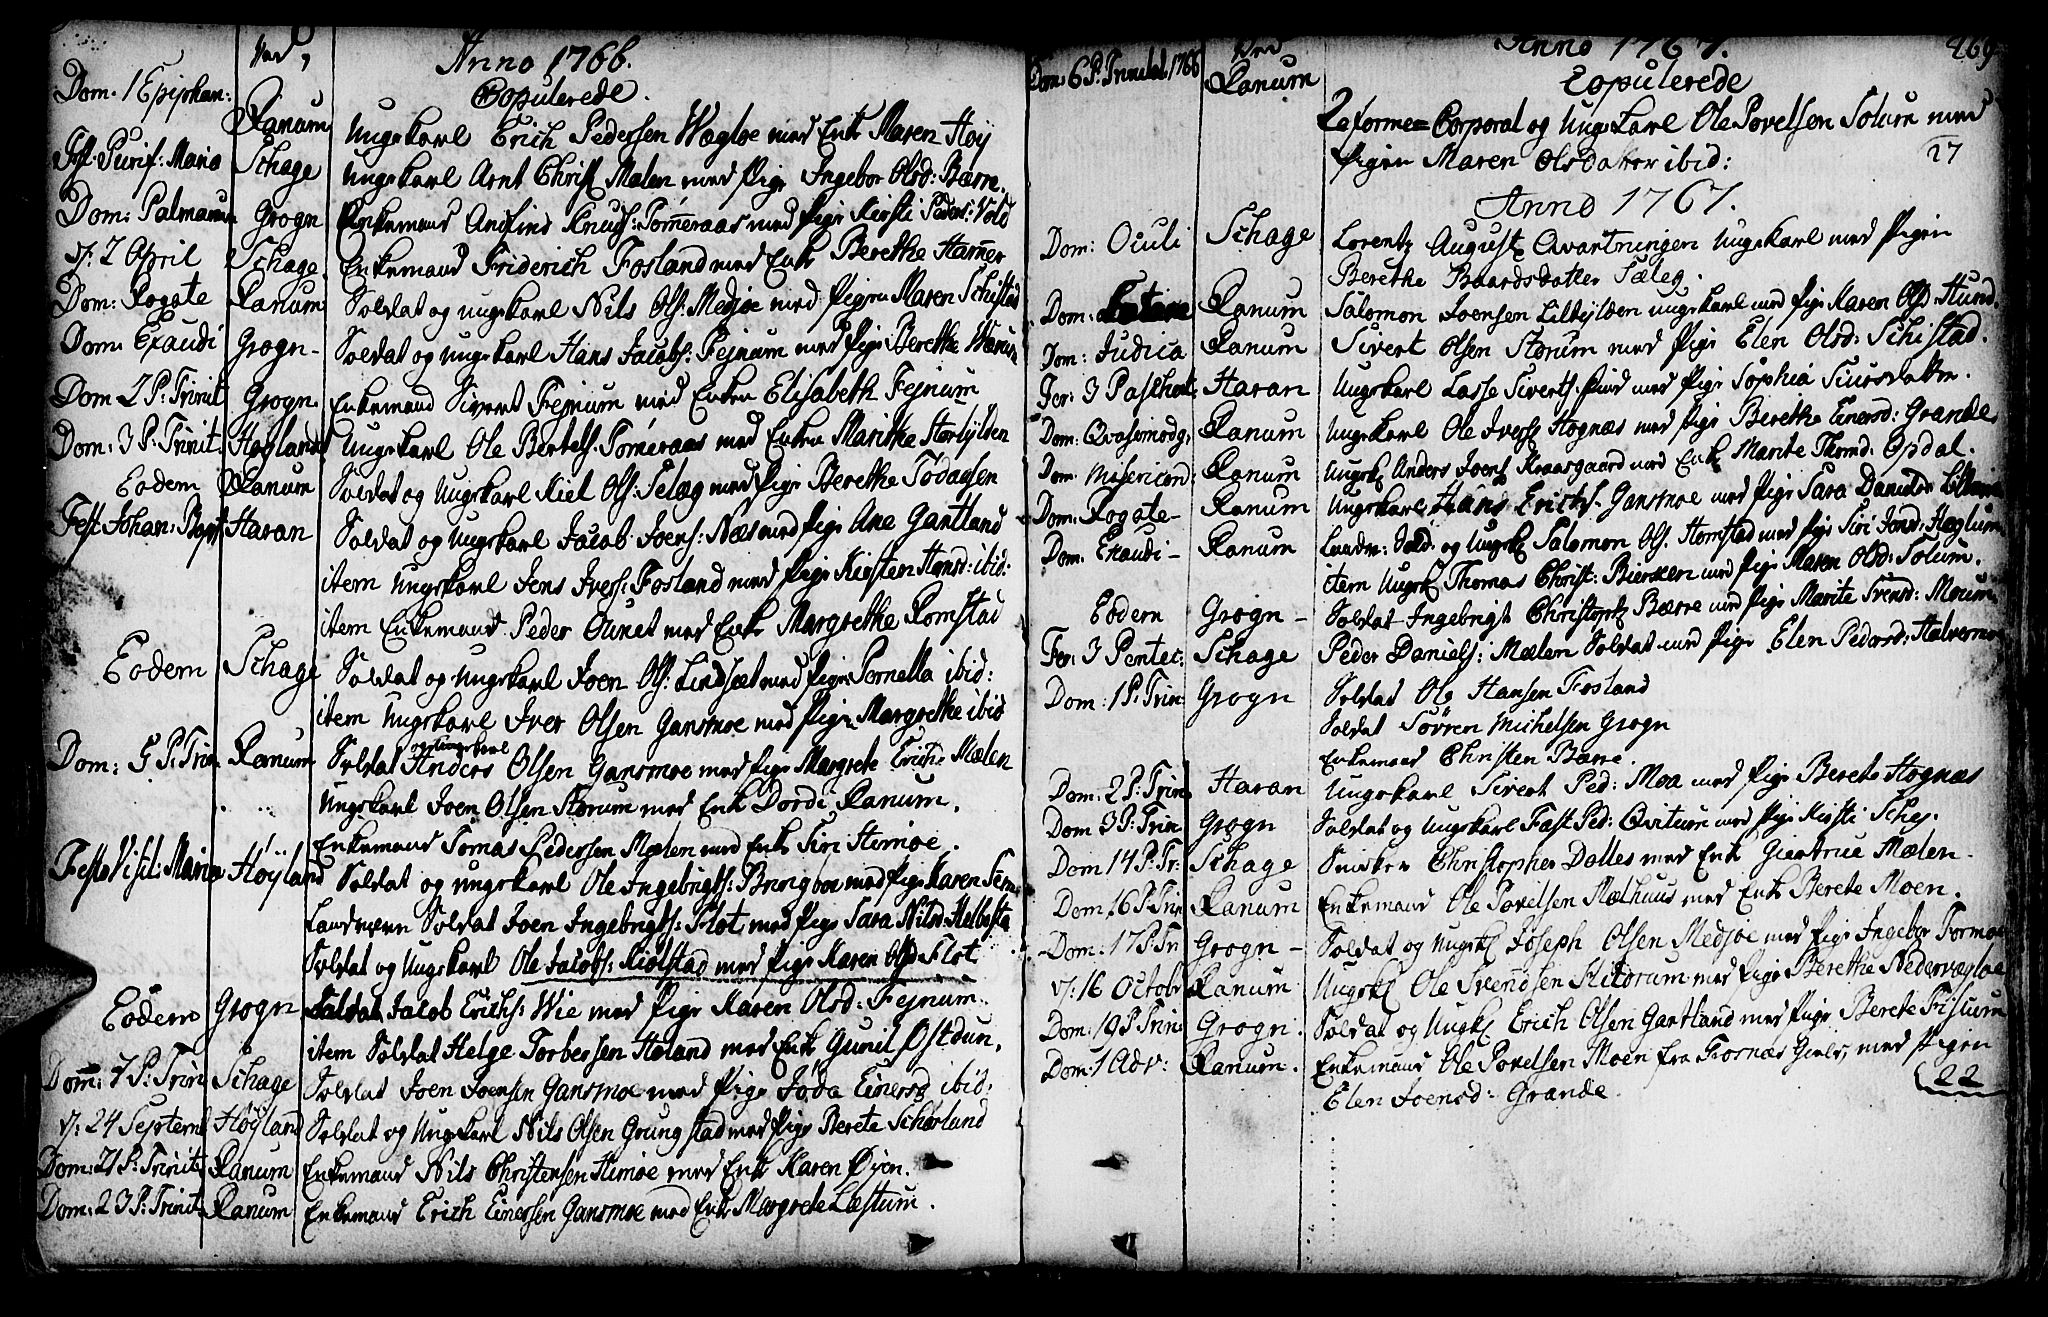 Ved
Anno 1766.
Copulerede.
Dom. 1 Epiphan: Ranum Ungekarl Erich Pedersen Wægloe med Enk Maren Høy
Fest. Purif: Maria Schage Ungekarl Arnt Christ Mælen med Pige Ingebor Olsd: Bærre.
Dom: Palmarum Grogn Enkemand Andfins Knuds: Tømeraas med Pige Kirsti Peders: Vold
d: 2 April Schage Enkemand Friderich Fosland med Enk Berethe Hammer
Dom: Rogate Ranum Soldat og ungekarl Nils Ols: Medjøe med Pigen Maren Schistad
Dom: Exaudi Grogn Soldat og ungekarl Hans Jacobs: Fejnum med Pige Berethe Werum
Dom 2 P: Trinit Grogn Enkemand Sivert Fejnum med Enken Elisabeth Fejnum
Dom: 3 P: Trinit: Høyland Ungekarl Ole Bertels: Tømeraas med Enken Marithe Storlylden
Eodem Ranum Soldat og Ungekarl Kiel Ols: Selæg med Pige Berethe Tødagsen
Fest Johan: Bapt Haran Soldat og Ungekarl Jacob Joens: Næs med Pige Ane Gantland
item Ungekarl Jens Ivers: Fosland med Pige Kirsten Hansd: ibid:
item Enkemand Peder Ounet med Enk Margrethe Romstad
Eodem Schage Soldat og Ungekarl Joen Ols: Lindsæt med Pige Pernella ibid:
item Ungekarl Iver Olsen Gansmoe med Pige Margrethe ibid
Dom: 5 P: Trin Ranum Soldat og Ungekarl Anders Olsen Gansmoe med Pige Margrete Erichs Mælen
Ungekarl Joen Olsen Storum med Enk Dordi Ranum.
Enkemand Tomas Pedersen Mælen med Enk Siri Himoe.
Festo Visit: Mariæ Høyland Soldat og ungekarl Ole Ingebrigts: Bringboe med Pige Karen
Landværn Soldat Joen Ingebrigts: Flot med Pige Sara Nilsd: Helbostad
Soldat og Ungekarl Ole Jacobs: Kiolstad med Pige Karen Olsd Flot
Eodem Grogn Soldat Jacob Erichs: Wie med Pige Karen Olsd: Fejnum.
item Soldat Helge Torbersen Høland med Enk Gunil Østdun.
Dom: 7 P: Trin Schage Soldat Joen Joensen Gansmoe med Pige Joda Einersd ibid:
d: 24 Septem Høyland Soldat og Ungekarl Nils Olsen Grungstad med Pige Berete Schørland
Dom: 21 P: Trinit Ranum Enkemand Nils Christensen Himoe med Enk Karen Øyen.
Dom: 23 P: Trinit Ranum Enkemand Erich Einersen Gansmoe med Enk Margrete Læstum.
269
Ved
Anno 1767.
Copulerede
Dom: 6 P: Trinitat. 1766 Ranum Reformee Corporal og Ungekarl Ole Povelsen Solum med
Pigen Maren Olsdatter ibid: 27
Anno 1767.
Dom: Oculi Schage Lorentz August Qvartningen Ungekarl med Pigen
Berethe Baardsdatter Sæleg.
Dom: Letare Ranum Salomon Joensen Lilkylden ungekarl med Pige Karen Olsd: Hund.
Dom: Judica Ranum Sivert Olsen Storum med Pige Elen Olsd: Schistad.
Fer: 3 Paschat. Haran Ungekarl Lasse Siverts: Piud med Pige Sophia Siursdatter.
Dom: Qvasimodg: Ranum Ungekarl Ole Ivers Hognæs med Pige Berethe Einersd: Grande
Dom: Misericord: Ranum Ungek Anders Joens Kraasgaard med Enk Marite Thomd: Opdal.
Dom: Rogate Ranum Ungekarl Hans Erichs: Gansmoe med Pige Sara Danielsd
Dom. Exaudi Ranum Landw: Sold. og Ungek Salomon Ols: Homstad med Pige Siri Jonsd: Høglum
item Ungek Thomas Christ: Biersken med Pige Maren Olsd: Solum.
Eodem Grogn Soldat Ingebrigt Christoph Bærre med Pige Marite Svends: Moum
Fer: 3 Pentec: Schage Peder Daniels: Mælen Soldat med Pige Elen Pedersd: Halvermoe
Dom: 1 P: Trin Grogn Soldat Ole Hansen Fosland
Soldat Sørren Michelsen Grogn
Enkemand Christen Bærre.
Dom: 2 P: Trin Haran Ungekarl Sivert Ped: Moa med Pige Berete Hognæs
Dom 3 P: Trin Grogn Soldat og Ungekarl Fast Ped: Qvitum med Pige Kirsti Schej.
Dom 14 P: Tr: Schage Snicker Christopher Dalles med Enk Giertrue Mælen.
Dom. 16 P: Trin Ranum Enkemand Ole Povelsen Mælhuus med Enk Berete Moen.
Dom. 17 P: Tr Grogn Soldat og Ungek Joseph Olsen Medjøe med Pige Ingebor Formoe
d: 16 Octobr Ranum Ungek Ole Svendsen Flitorum med Pige Berethe Nedervægloe
Dom: 19 P: Trin Grogn. Soldat og Ungk Erich Olsen Gantland med Pige Berete Fislum
Dom: 1 Adv: Ranum. Enkemand Ole Povelsen Moen fra Fosnæs Gield, med Pigen
Elen Joensd: Grande. 22